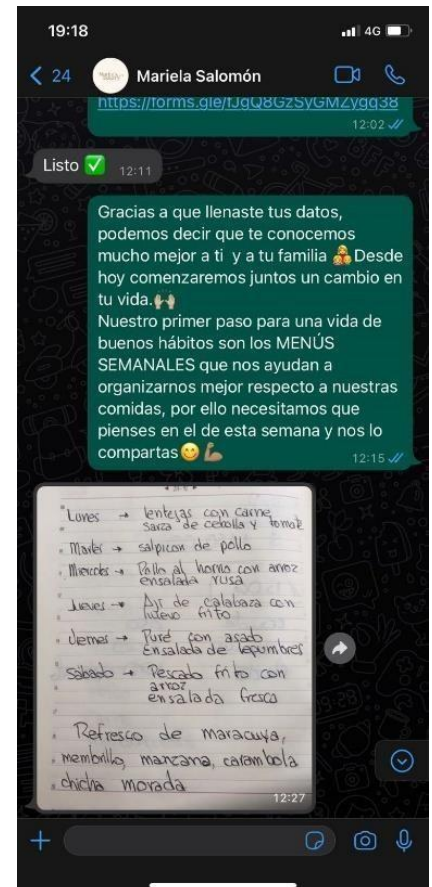 19:18
4G
24
Mariela Salomón
https://forms.gle/fJgQ8GzSyGMZygq38
12:02
Listo ✅ 12:11
Gracias a que llenaste tus datos,
podemos decir que te conocemos
mucho mejor a ti y a tu familia Desde
hoy comenzaremos juntos un cambio en
tu vida.
Nuestro primer paso para una vida de
buenos hábitos son los MENÚS
SEMANALES que nos ayudan a
organizarnos mejor respecto a nuestras
comidas, por ello necesitamos que
pienses en el de esta semana y nos lo
compartas😊💪🏽
12:15
Lunes → lentejas con carne
sarza de cebolla y tomate
Martes → salpicon de pollo
Miercoles → Pollo al horno con arroz
ensalada rusa
Jueves → Aji de calabaza con
huevo frito
Viernes → Puré con asado
Ensalada de legumbres
Sábado → Pescado frito con
arroz
ensalada fresca
Refresco de maracuya,
membrillo, manzana, carambola
chicha morada
12:27